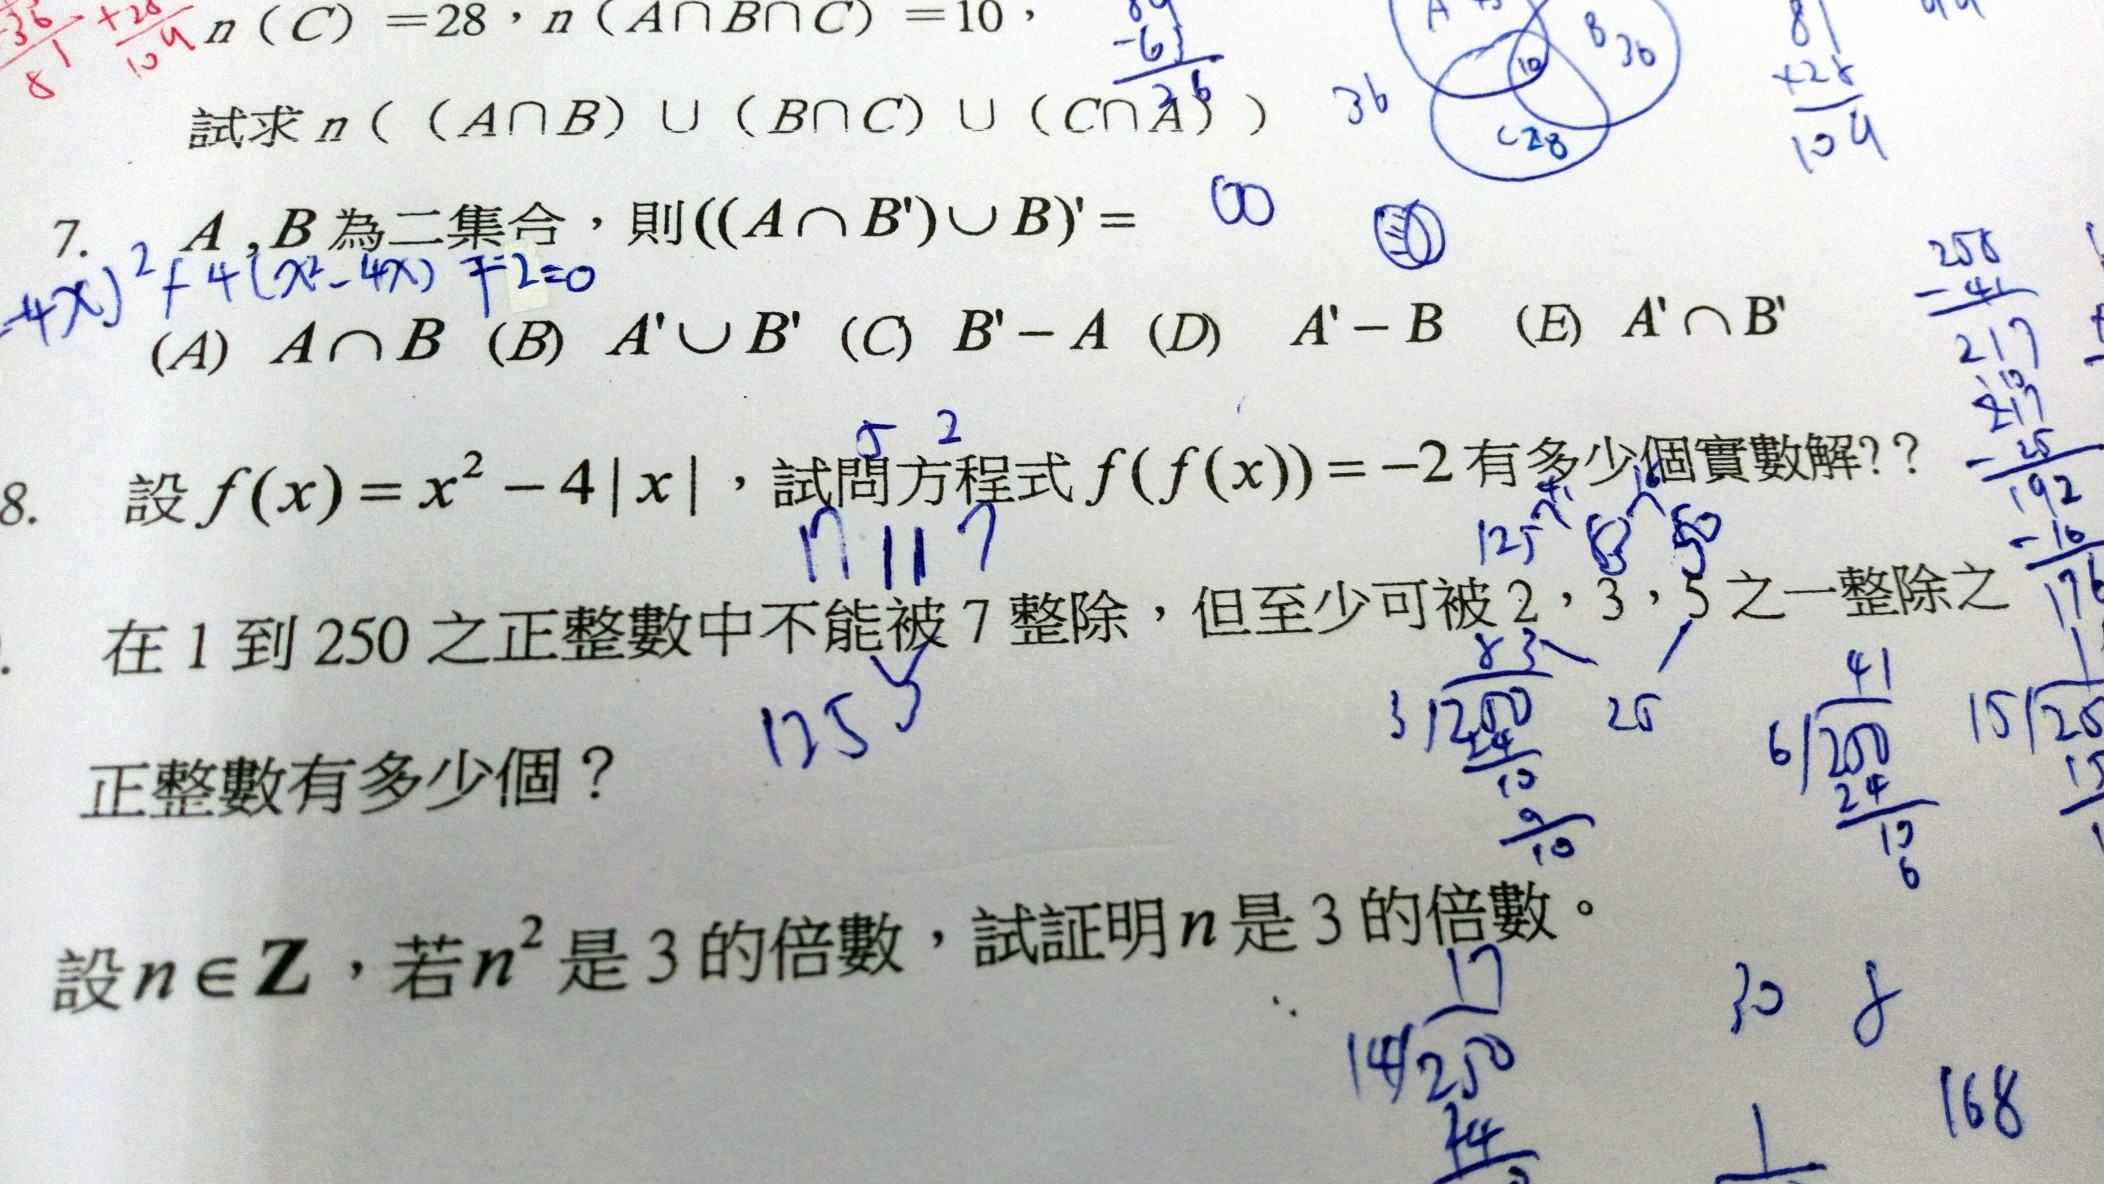 n（C）=28，n（A∩B∩C）=10，
試求 n（（A∩B）∪（B∩C）∪（C∩A））
7. A , B 為二集合，則((A∩B')∪B)' =
4x)² + 4(x² - 4x) + 2 = 0
(A) A∩B (B) A'∪B' (C) B'－A (D) A'－B (E) A'∩B'
5 2
8. 設 f(x) = x² － 4|x|，試問方程式 f(f(x)) = －2 有多少個實數解??
17 11 7
125 83 50
在 1 到 250 之正整數中不能被 7 整除，但至少可被 2，3，5 之一整除之
正整數有多少個？
125
設 n∈Z，若 n² 是 3 的倍數，試証明 n 是 3 的倍數。
36
81
+28
104
-63
26
36
A
B 36
10
C 28
81
+28
104
250
- 41
217
217
- 25
192
- 16
176
83
3 250
24
10
9
10
25
41
6 250
24
10
6
15 25
17
14 250
14
30 8
168
1